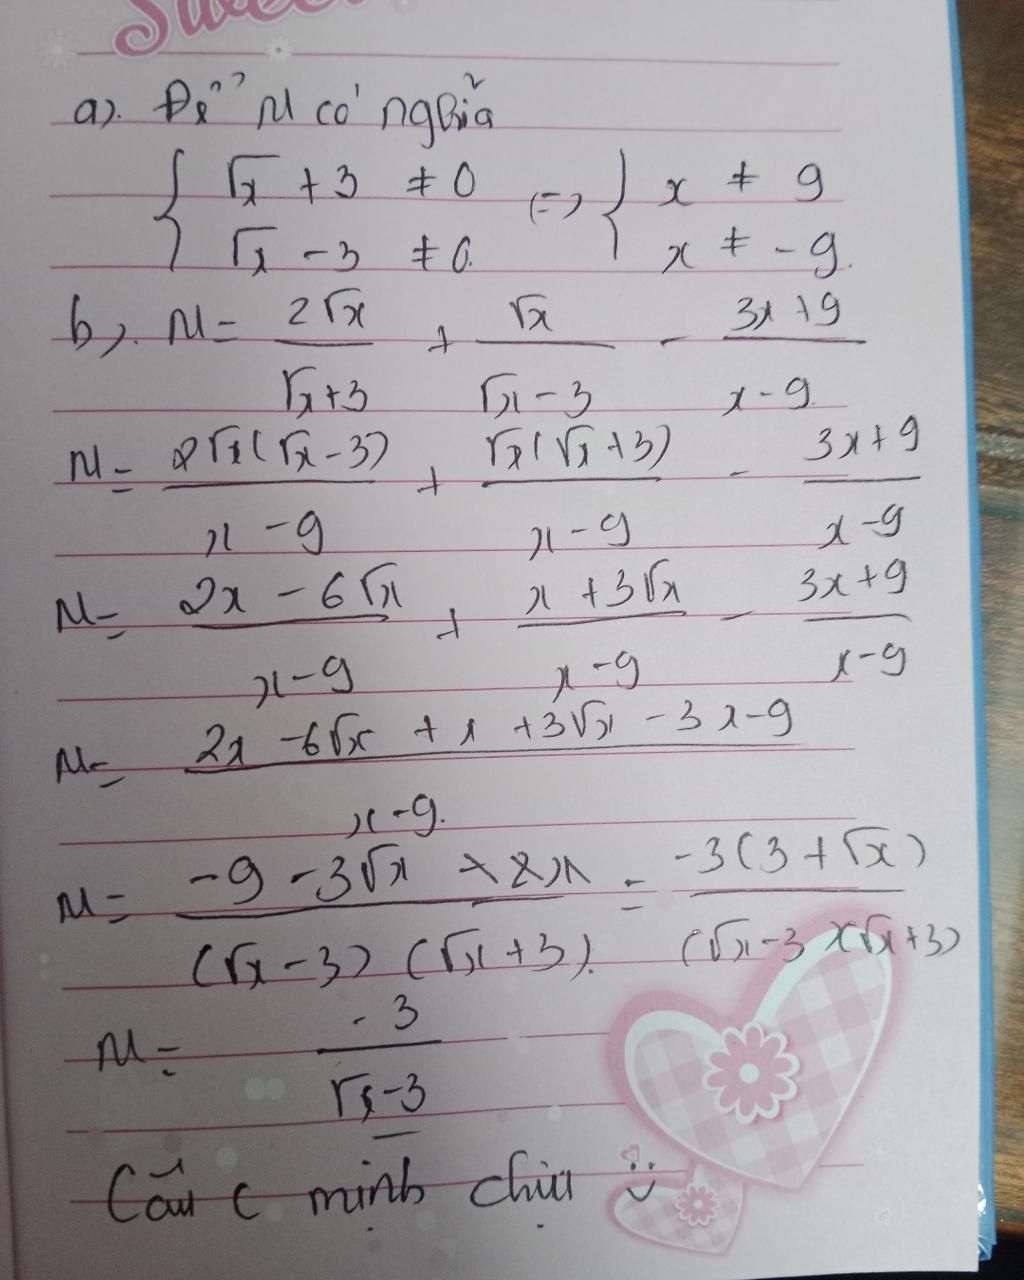 a). Để M có nghĩa
{ √x + 3 ≠ 0 (=) { x ≠ 9
√x - 3 ≠ 0. x ≠ -9.
b). M = 2√x / √x+3 + √x / √x-3 - 3x+9 / x-9.
M = 2√x(√x-3) / x-9 + √x(√x+3) / x-9 - 3x+9 / x-9
M = 2x - 6√x / x-9 + x + 3√x / x-9 - 3x+9 / x-9
M = 2x - 6√x + x + 3√x - 3x - 9 / x-9.
M = -9 - 3√x / (√x-3) (√x+3). = -3(3+√x) / (√x-3)(√x+3)
M = -3 / √x-3
Câu c mình chịu